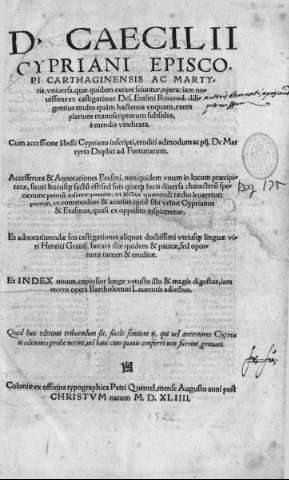 D. CAECILII
CYPRIANI EPISCO-
PI CARTHAGINENSIS AC MARTY-
ris, vniuersa, quæ quidem extare sciuntur, opera: iam no
uissime ex castigatione Des. Erasmi Roterod. dili-
gentius multo quàm hactenus vnquam, exem-
plarium manuscriptorum subsidio,
à mendis vindicata.
Cum accessione libelli Cypriano inscripti, eruditi admodum ac pij, De Mar
tyrio Duplici ad Fortunatum.
Accesserunt & Annotationes Erasmi, non quidem vnum in locum præcipi-
tatæ, sicuti hucusq; factū est: sed suis quæq; locis diuersa characteris spe-
cie nunc primū insertæ: partim, vt lectori quærendi tædio leuaretur:
partim, vt commodius & acutius, quid sibi velint Cyprianus
& Erasmus, quasi ex opposito inspiceretur.
Et adnotatiunculæ seu castigationes aliquot doctissimi vtriusq; linguæ vi-
ri Henrici Grauij, breues illæ quidem & paucæ, sed opor-
tunæ tamen & eruditæ.
Et INDEX nouus, copiosior longe vetusto illo & magis digestus, iam
recens opera Bartholomæi Laurentis adiectus.
Quid huic editioni tribuendum sit, facile sentient ij, qui vel anteriores Cypria
ni editiones probe norint, vel hanc cum quauis conferre non fuerint grauati.
Coloniæ ex officina typographica Petri Quentel, mense Augusto anni post
CHRISTVM natum M. D. XLIIII.